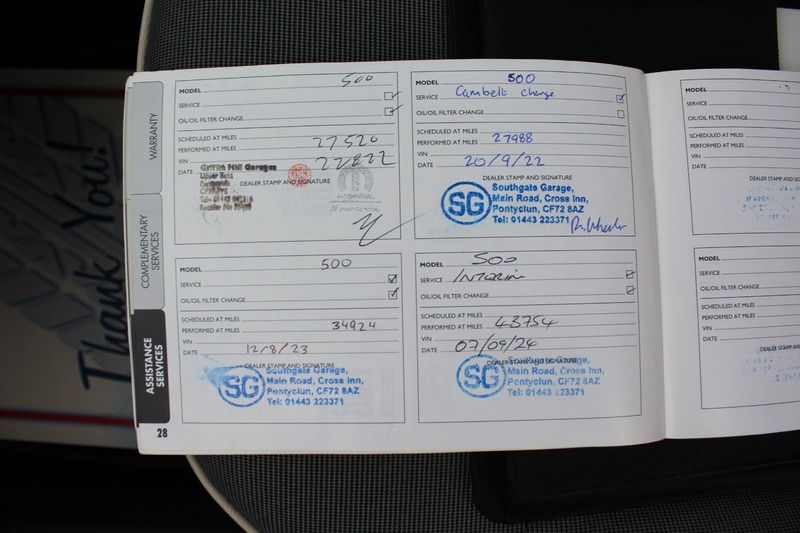 WARRANTY
COMPLEMENTARY
SERVICES
ASSISTANCE
SERVICES
Thank You!
MODEL 500
SERVICE
OIL/OIL FILTER CHANGE
SCHEDULED AT MILES
PERFORMED AT MILES 27520
VIN
DATE 22822
Griffin Mill Garages
Upper Boat
DEALER STAMP AND SIGNATURE
MODEL 500
SERVICE Cambelt change
OIL/OIL FILTER CHANGE
SCHEDULED AT MILES
PERFORMED AT MILES 27988
VIN
DATE 20/9/22
DEALER STAMP AND SIGNATURE
SG
Southgate Garage,
Main Road, Cross Inn,
Pontyclun, CF72 8AZ
Tel: 01443 223371
MODEL 500
SERVICE
OIL/OIL FILTER CHANGE
SCHEDULED AT MILES
PERFORMED AT MILES 34924
VIN
DATE 12/8/23
DEALER STAMP AND SIGNATURE
SG
Southgate Garage,
Main Road, Cross Inn,
Pontyclun, CF72 8AZ
Tel: 01443 223371
MODEL 500
SERVICE INTERIM
OIL/OIL FILTER CHANGE
SCHEDULED AT MILES
PERFORMED AT MILES 43754
VIN
DATE 07/09/24
DEALER STAMP AND SIGNATURE
SG
Southgate Garage,
Main Road, Cross Inn,
Pontyclun, CF72 8AZ
Tel: 01443 223371
28
MODEL
SERVICE
OIL/OIL FILTER CHANGE
SCHEDULED AT MILES
PERFORMED AT MILES
VIN
DATE
MODEL
SERVICE
OIL/OIL FILTER CHANGE
SCHEDULED AT MILES
PERFORMED AT MILES
VIN
DATE